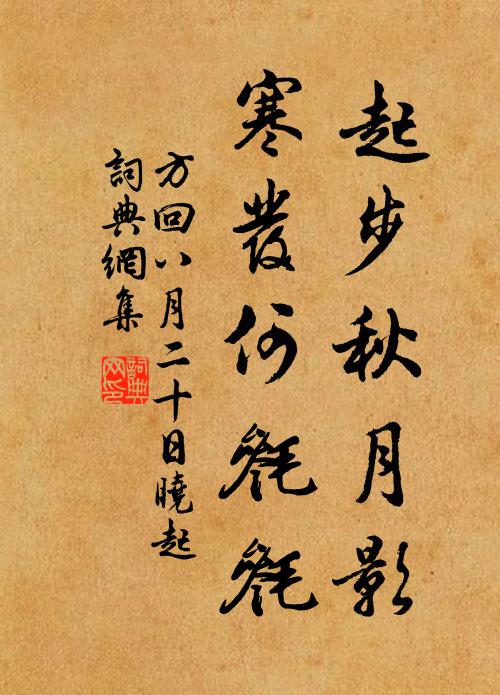 起步秋月影
寒發何毿毿
方回八月二十日曉起
詞典網集
詞典
网印